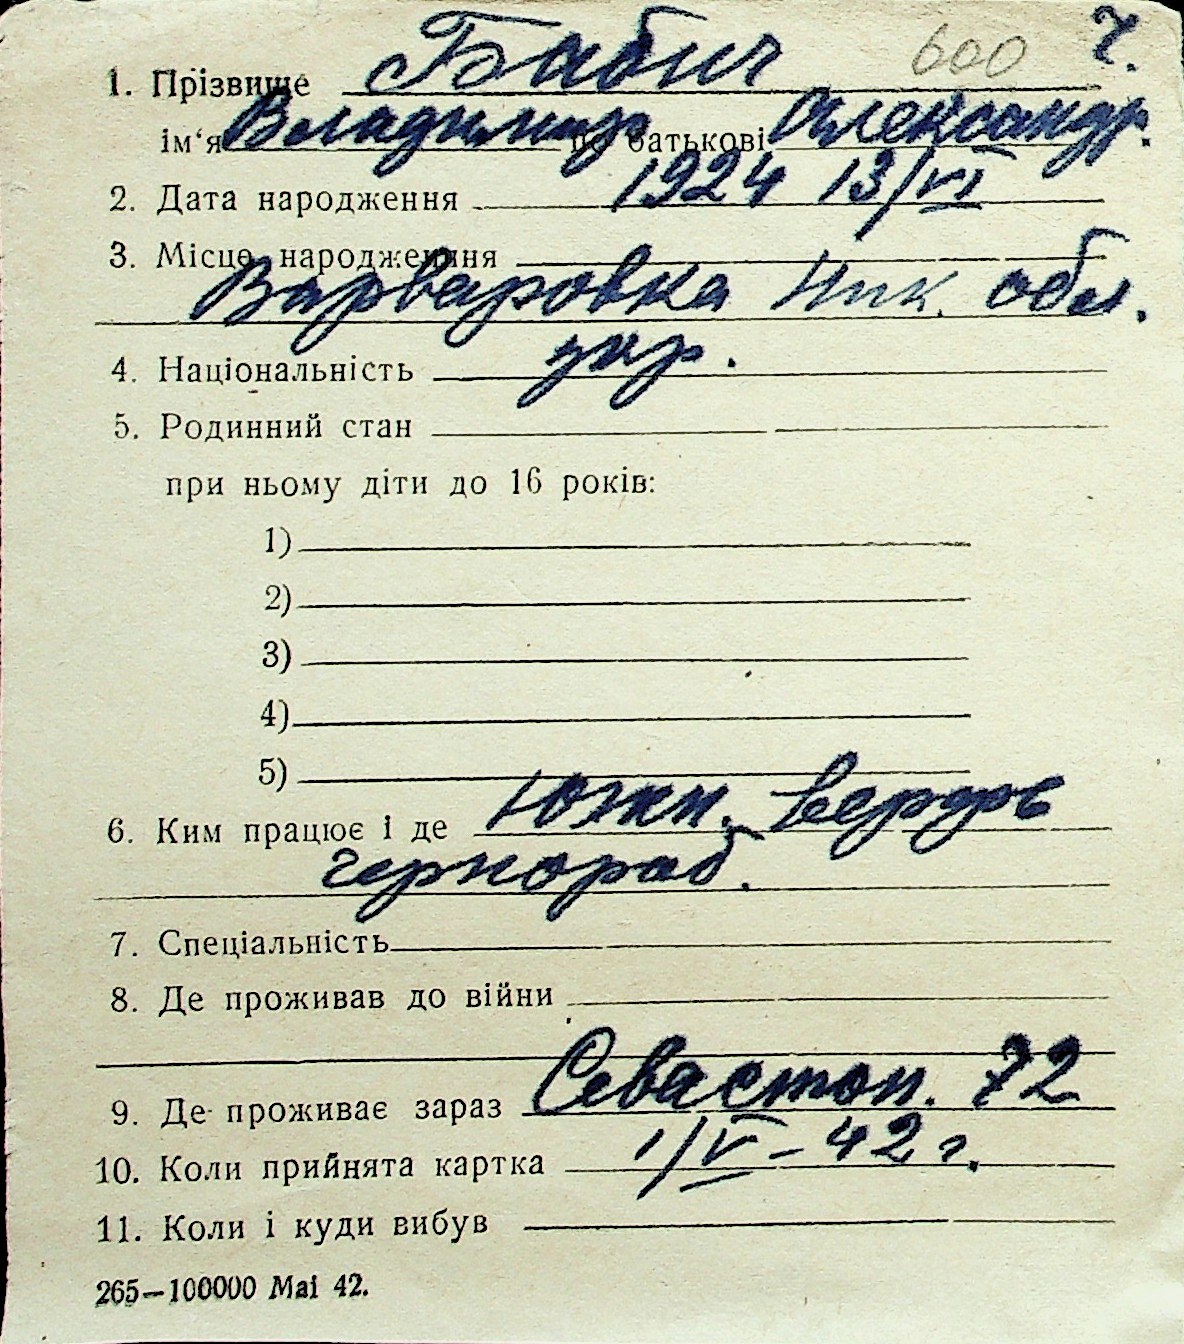 600 Ч.
1. Прізвище Бабич
ім‘я Владимир по батькові Александр.
2. Дата народження 1924 13/VI
3. Місце народження
Варваровка Ник. обл.
4. Національність укр.
5. Родинний стан
при ньому діти до 16 років:
1)
2)
3)
4)
5)
6. Ким працює і де Южн. верфь
чернораб.
7. Спеціальність
8. Де проживав до війни
9. Де проживає зараз Севастоп. 72
10. Коли прийнята картка 1/V – 42 г.
11. Коли і куди вибув
265—100000 Mai 42.